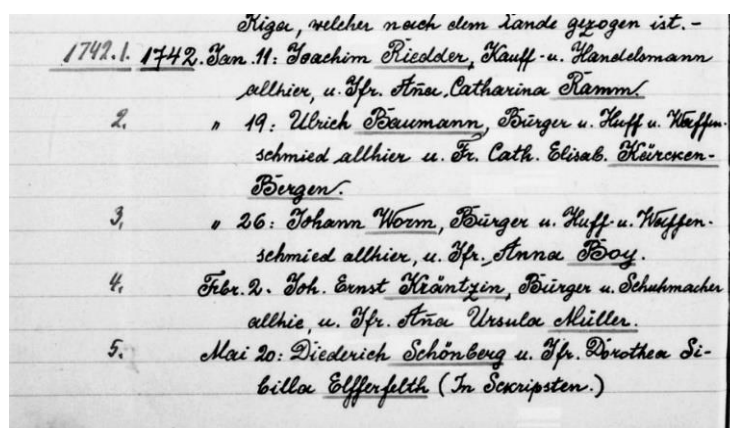 Riga, welcher nach dem Lande gezogen ist.-
1742.1. 1742. Jan. 11: Joachim Riedder, Kauff- u. Handelsmann
allhier, u. Jfr. Aña Catharina Ramm.
2. " 19: Ulrich Baumann, Bürger u. Huff u. Waffen-
schmied allhier u. Fr. Cath. Elisab. Keürcken-
Bergen.
3. " 26: Johann Worm, Bürger u. Huff- u. Waffen-
schmied allhier, u. Jfr. Anna Boy.
4. Febr. 2. Joh. Ernst Kräntzin, Bürger u. Schuhmacher
allhie, u. Jfr. Aña Ursula Müller.
5. Mai 20: Diederich Schönberg u. Jfr. Dorothea Si-
billa Elfferfelth (In Sckripsten.)